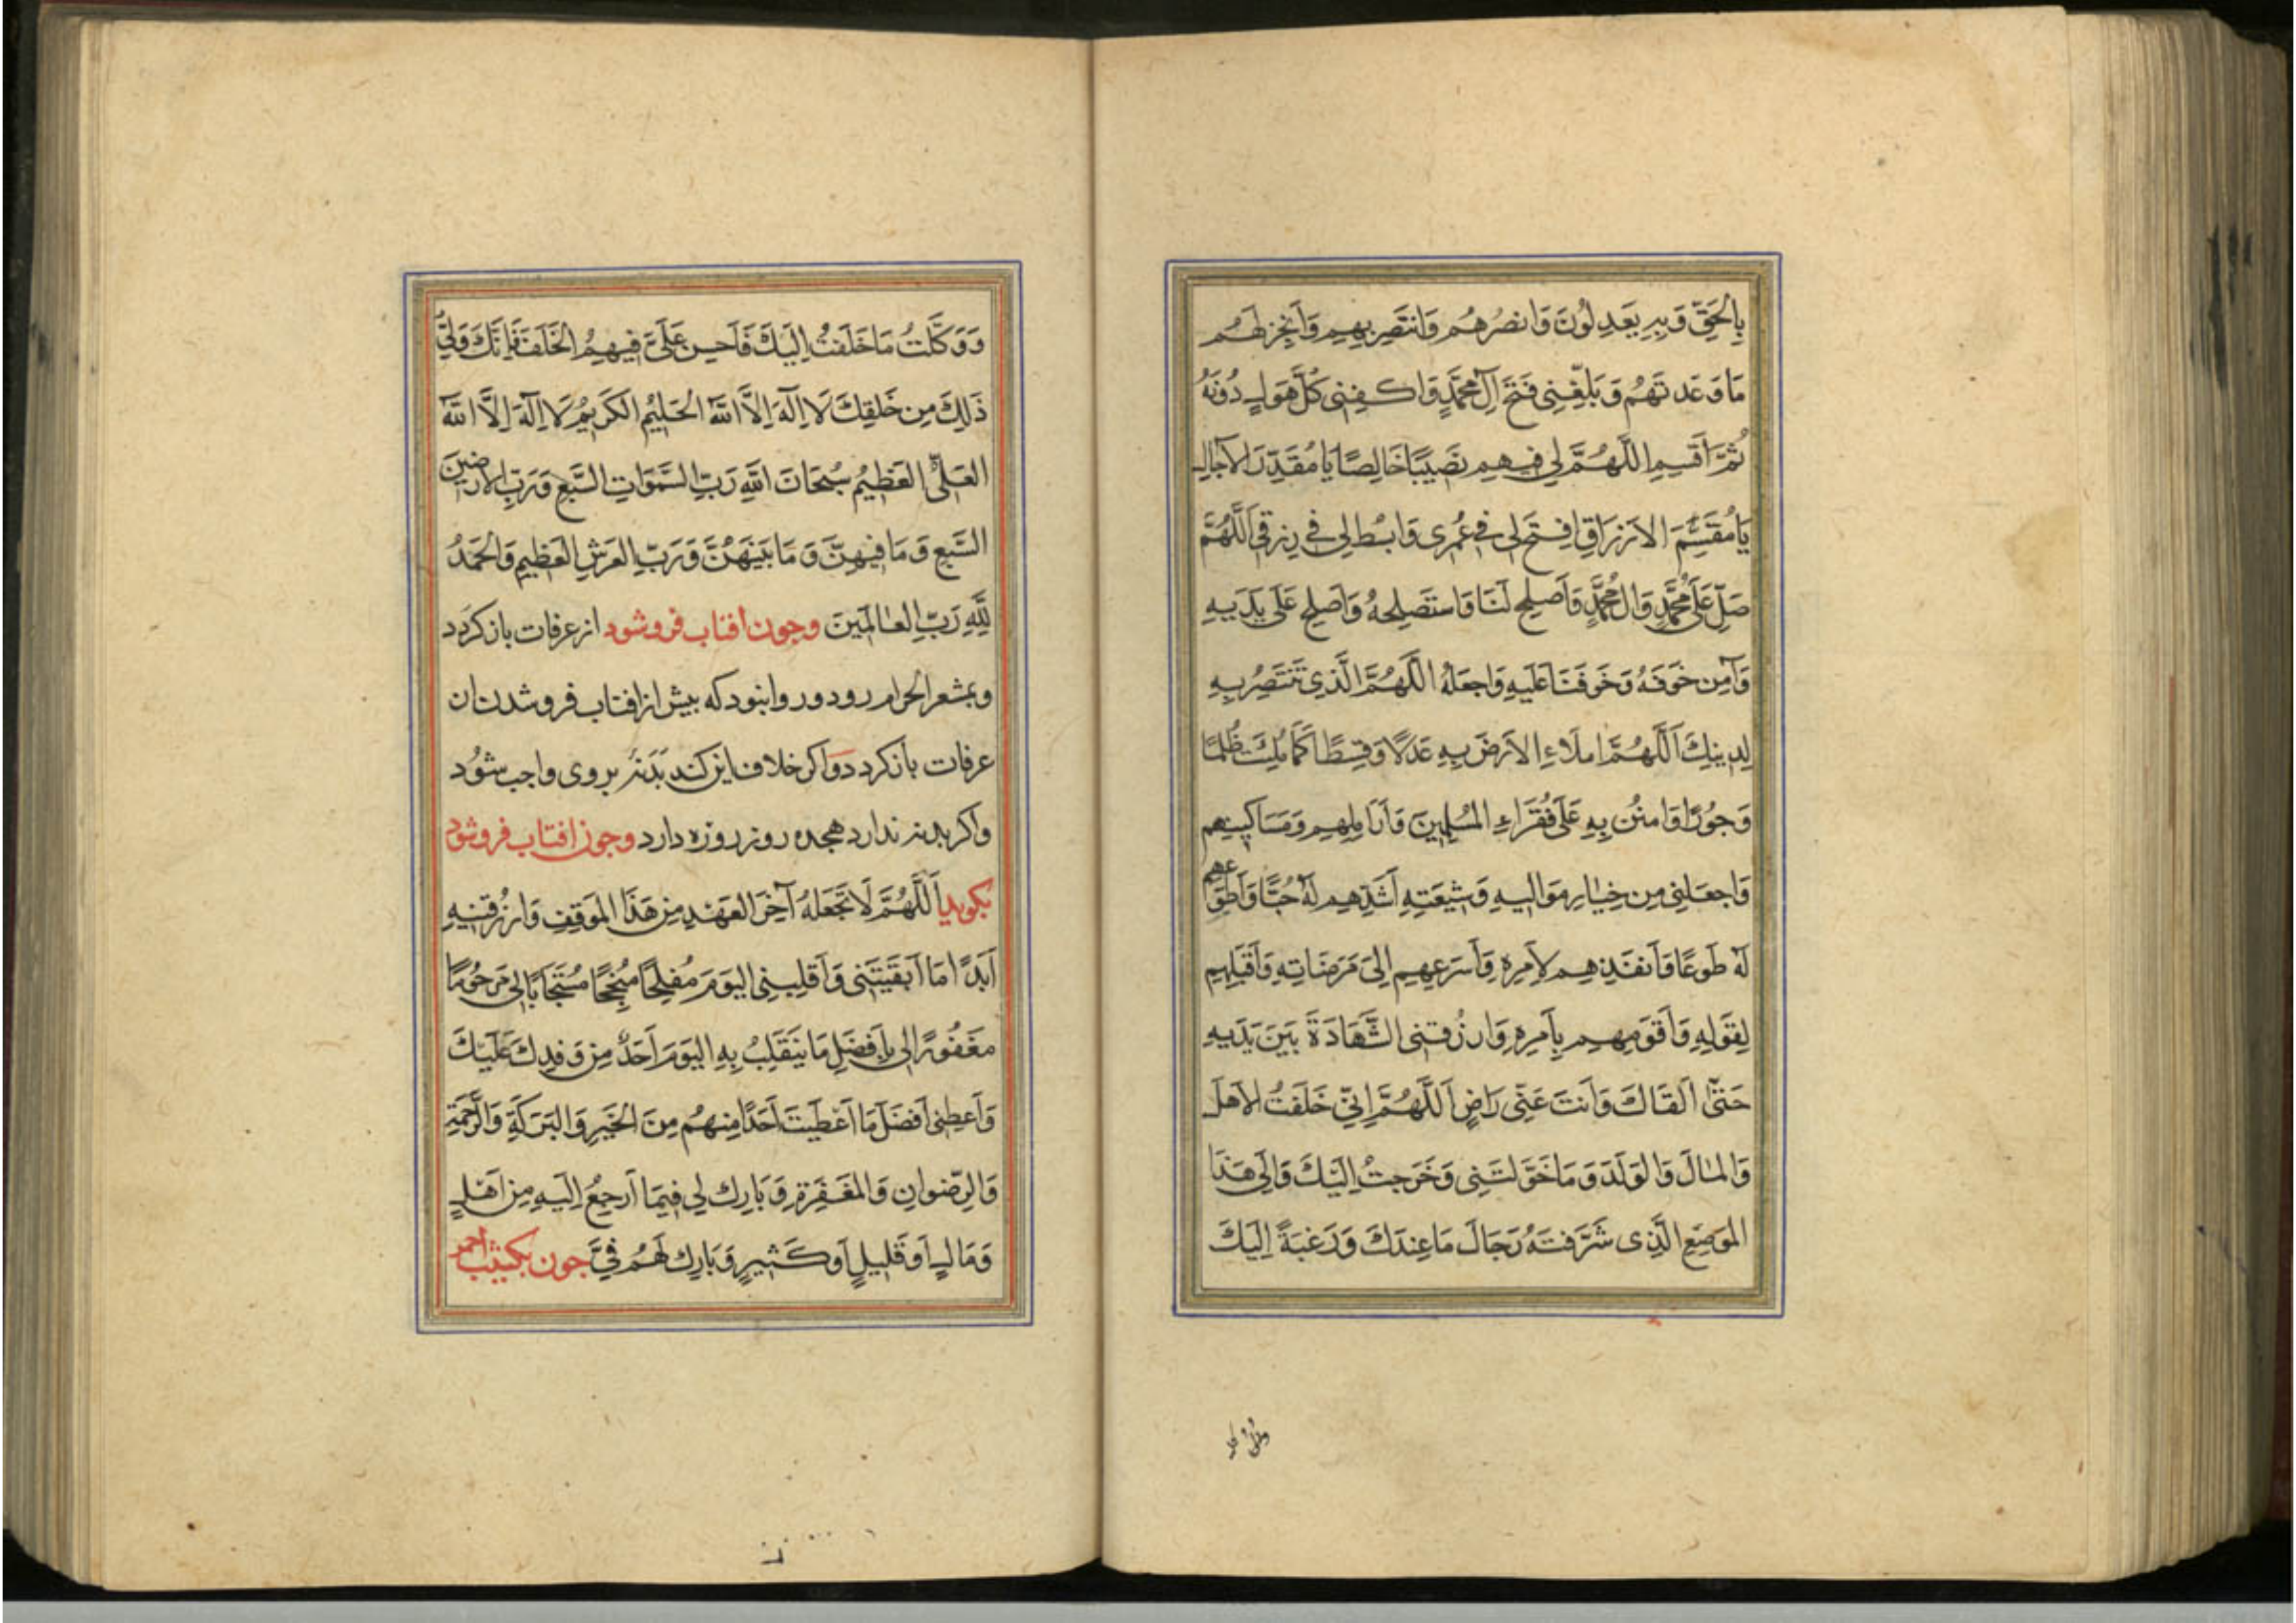 بِالْحَقِّ وَبِهِ يَعْدِلُونَ وَانصُرْهُمْ وَانتَصِرْ بِهِمْ وَأَنْجِزْ لَهُمْ
مَا وَعَدتَهُمْ وَبَلِّغْنِي فَتْحَ آلِ مُحَمَّدٍ وَاكْفِنِي كُلَّ هَوْلٍ دُونَهُ
ثُمَّ اقْسِمِ اللَّهُمَّ لِي فِيهِمْ نَصِيبًا خَالِصًا يَا مُقَدِّرَ الآجَالِ
يَا مُقَسِّمَ الأَرْزَاقِ افْتَحْ لِي فِي عُمُرِي وَابْسُطْ لِي فِي رِزْقِي اَللَّهُمَّ
صَلِّ عَلَى مُحَمَّدٍ وَآلِ مُحَمَّدٍ وَأَصْلِحْ لَنَا وَاسْتَصْلِحْهُ وَأَصْلِحْ عَلَى يَدَيْهِ
وَآمِنْ خَوْفَهُ وَخَوْفَنَا عَلَيْهِ وَاجْعَلْهُ اللَّهُمَّ الَّذِي تَنْتَصِرُ بِهِ
لِدِينِكَ اَللَّهُمَّ امْلَاءِ الأَرْضَ بِهِ عَدْلًا وَقِسْطًا كَمَا مُلِئَتْ ظُلْمًا
وَجَوْرًا وَامْنُنْ بِهِ عَلَى فُقَرَاءِ الْمُسْلِمِينَ وَأَرَامِلِهِمْ وَمَسَاكِينِهِمْ
وَاجْعَلْنِي مِنْ خِيَارِ مَوَالِيهِ وَشِيعَتِهِ أَشَدِّهِمْ لَهُ حُبًّا وَأَطْوَعِهِمْ
لَهُ طَوْعًا وَأَنْفَذِهِمْ لِأَمْرِهِ وَأَسْرَعِهِمْ إِلَى مَرْضَاتِهِ وَأَقْبَلِهِمْ
لِقَوْلِهِ وَأَقْوَمِهِمْ بِأَمْرِهِ وَارْزُقْنِي الشَّهَادَةَ بَيْنَ يَدَيْهِ
حَتَّى أَلْقَاكَ وَأَنْتَ عَنِّي رَاضٍ اَللَّهُمَّ إِنِّي خَلَفْتُ الأَهْلَ
وَالْمَالَ وَالْوَلَدَ وَمَا خَوَّلْتَنِي وَخَرَجْتُ إِلَيْكَ وَإِلَى هَذَا
الْمَوْضِعِ الَّذِي شَرَّفْتَهُ رَجَاءَ مَا عِنْدَكَ وَرَغْبَةً إِلَيْكَ
وَوَكَّلْتُ مَا خَلَفْتُ إِلَيْكَ فَأَحْسِنْ عَلَيَّ فِيهِمُ الْخَلَفَ فَإِنَّكَ وَلِيُّ
ذَلِكَ مِنْ خَلْقِكَ لَا إِلَهَ إِلَّا اللَّهُ الْحَلِيمُ الْكَرِيمُ لَا إِلَهَ إِلَّا اللَّهُ
الْعَلِيُّ الْعَظِيمُ سُبْحَانَ اللَّهِ رَبِّ السَّمَوَاتِ السَّبْعِ وَرَبِّ الأَرَضِينَ
السَّبْعِ وَمَا فِيهِنَّ وَمَا بَيْنَهُنَّ وَرَبِّ الْعَرْشِ الْعَظِيمِ وَالْحَمْدُ
لِلَّهِ رَبِّ الْعَالَمِينَ وجون افتاب فروشود از عرفات باز کردد
وبمشعر الحرام رود وروا نبود که بیش از افتاب فروشدن ان
عرفات باز کردد واکر خلاف این کند بَدَنه بر وی واجب شود
واکر بدنه ندارد هجده روز روزه دارد وجون افتاب فروشود
بکوید اَللَّهُمَّ لَا تَجْعَلْهُ آخِرَ الْعَهْدِ مِنْ هَذَا الْمَوْقِفِ وَارْزُقْنِيهِ
أَبَدًا مَا أَبْقَيْتَنِي وَاقْلِبْنِي الْيَوْمَ مُفْلِحًا مُنْجِحًا مُسْتَجَابًا لِي مَرْحُومًا
مَغْفُورًا لِي بِأَفْضَلِ مَا يَنْقَلِبُ بِهِ الْيَوْمَ أَحَدٌ مِنْ وَفْدِكَ عَلَيْكَ
وَأَعْطِنِي أَفْضَلَ مَا أَعْطَيْتَ أَحَدًا مِنْهُمْ مِنَ الْخَيْرِ وَالْبَرَكَةِ وَالرَّحْمَةِ
وَالرِّضْوَانِ وَالْمَغْفِرَةِ وَبَارِكْ لِي فِيمَا أَرْجِعُ إِلَيْهِ مِنْ أَهْلٍ
وَمَالٍ أَوْ قَلِيلٍ أَوْ كَثِيرٍ وَبَارِكْ لَهُمْ فِيَّ جون بکثیب احمر